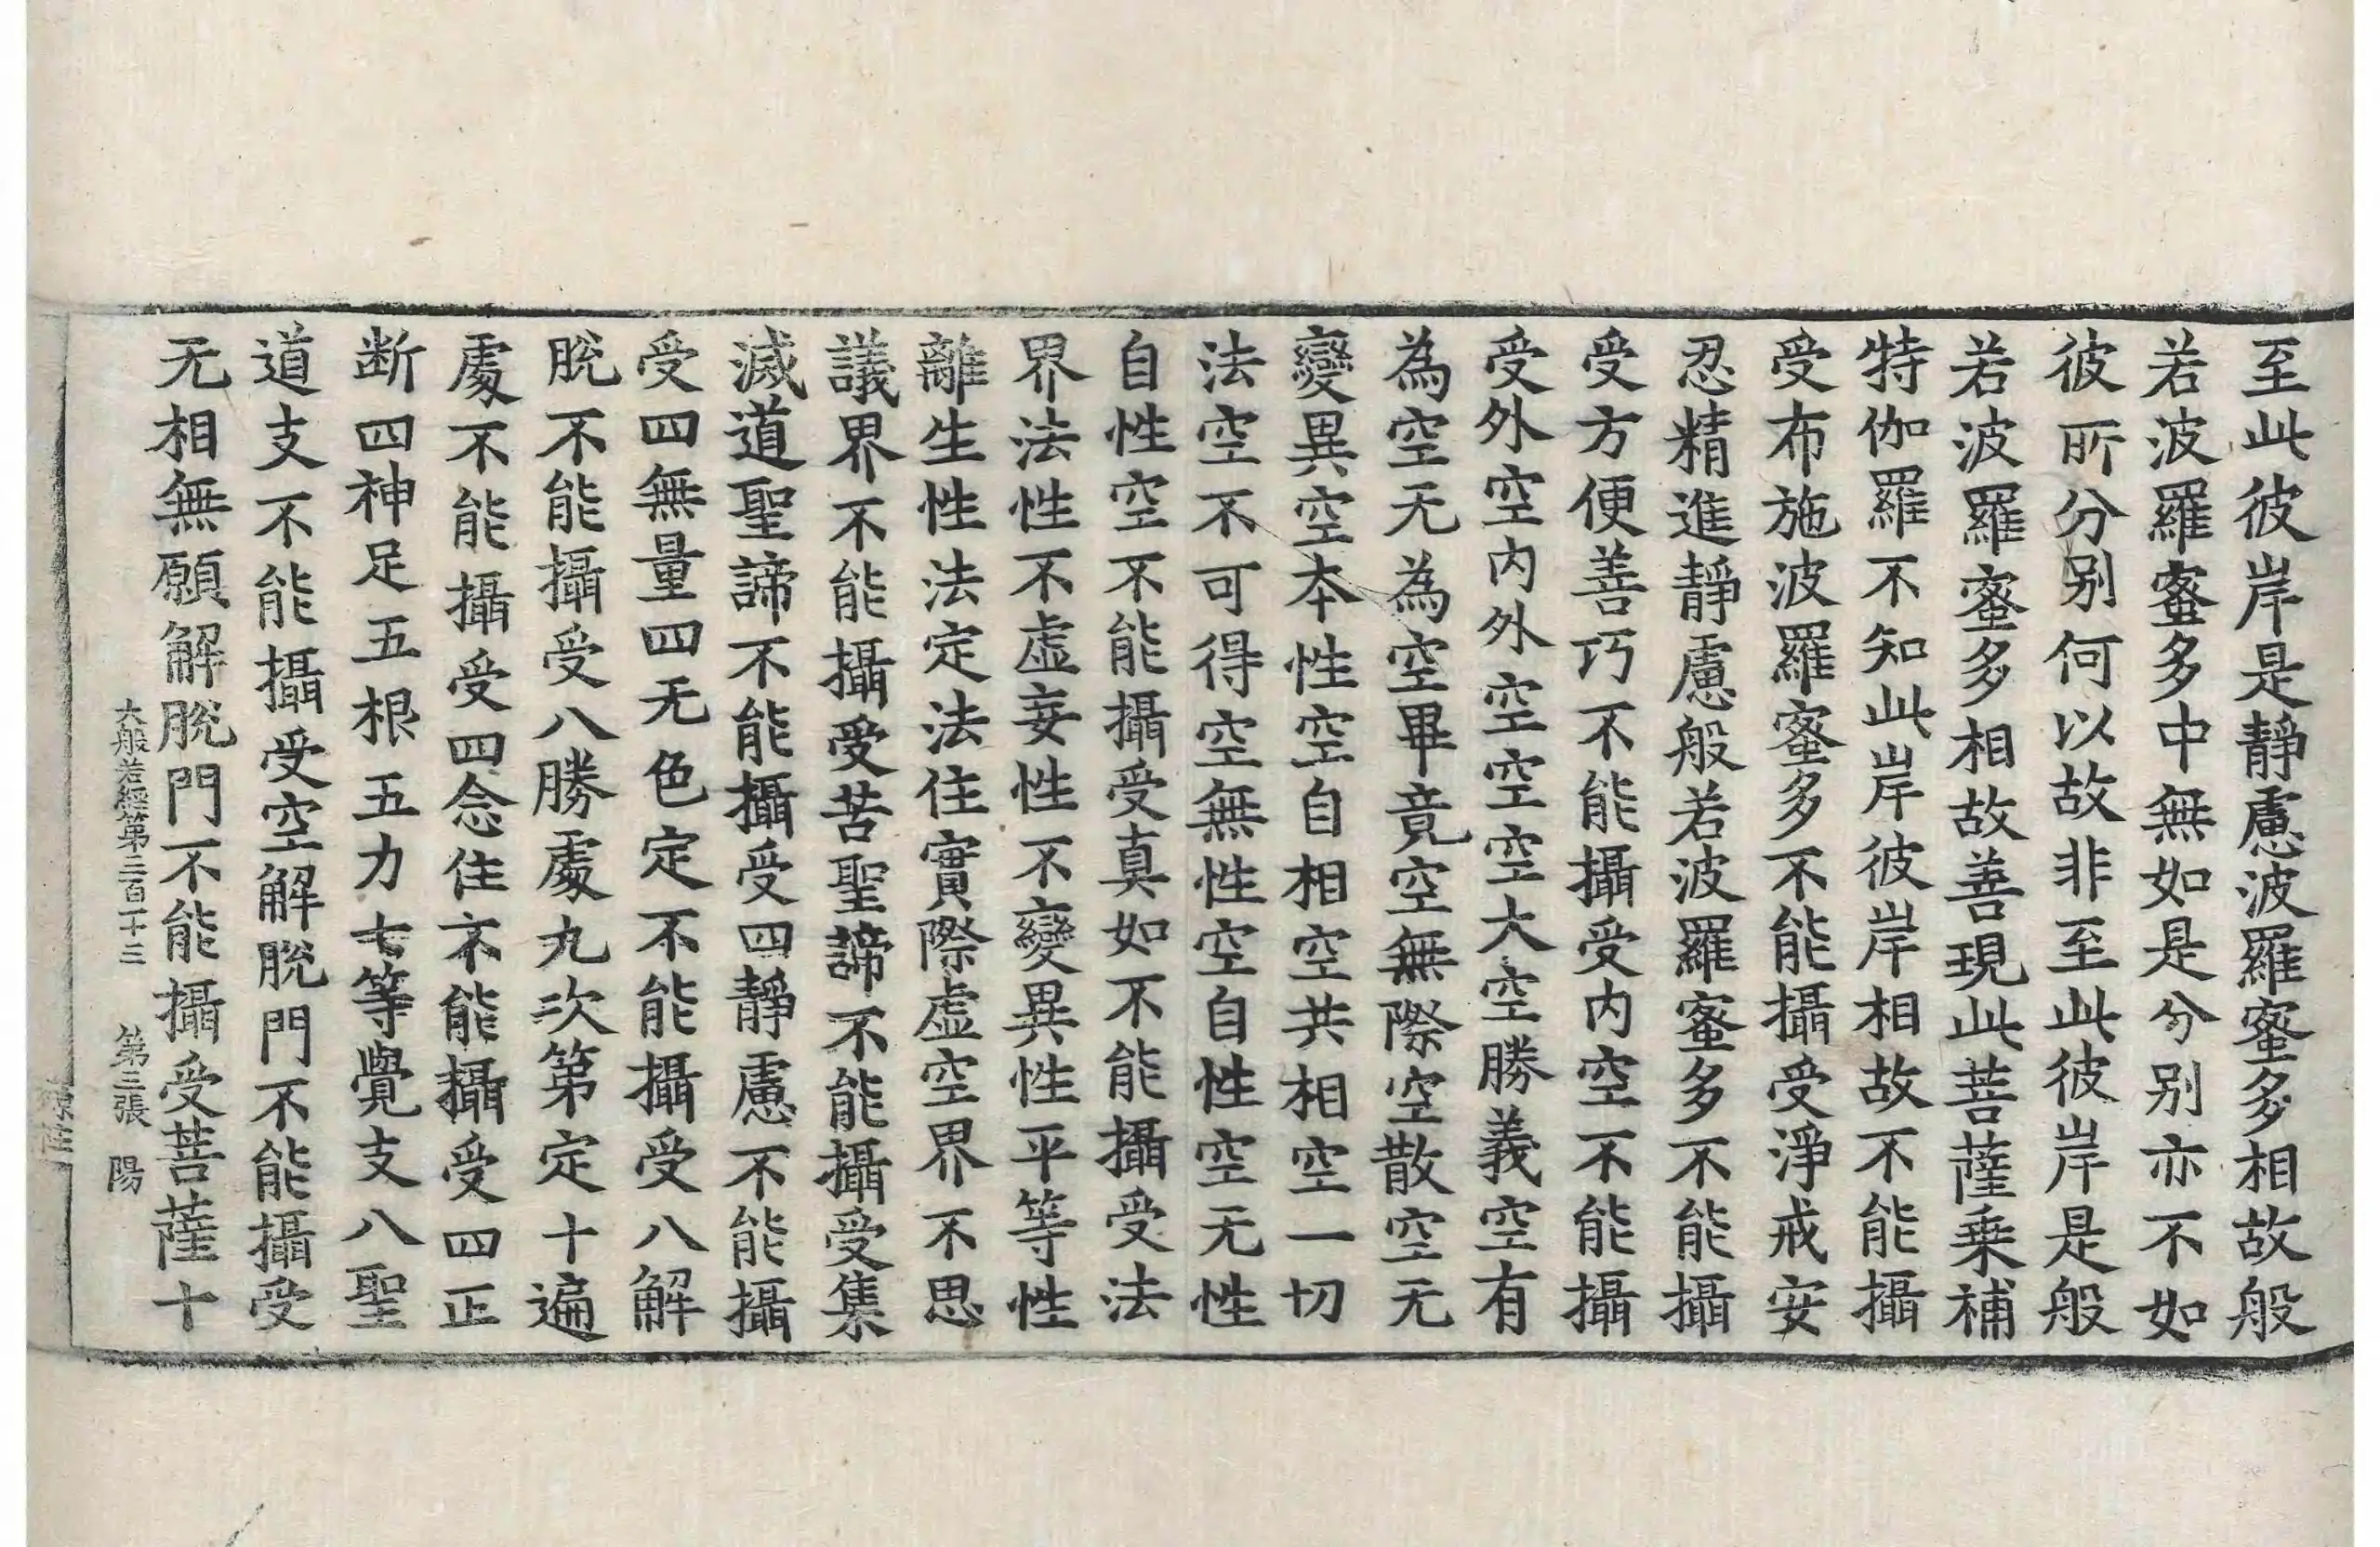 至此彼岸是靜慮波羅蜜多相故般
若波羅蜜多中無如是分别亦不如
彼所分别何以故非至此彼岸是般
若波羅蜜多相故善現此菩薩乗補
特伽羅不知此岸彼岸相故不能攝
受布施波羅蜜多不能攝受淨戒安
忍精進靜慮般若波羅蜜多不能攝
受方便善巧不能攝受内空不能攝
受外空内外空空空大空勝義空有
為空无為空畢竟空無際空散空无
變異空本性空自相空共相空一切
法空不可得空無性空自性空无性
自性空不能攝受真如不能攝受法
界法性不虛妄性不變異性平等性
離生性法定法住實際虛空界不思
議界不能攝受苦聖諦不能攝受集
滅道聖諦不能攝受四靜慮不能攝
受四無量四无色定不能攝受八解
脫不能攝受八勝處九次第定十遍
處不能攝受四念住不能攝受四正
断四神足五根五力七等覺支八聖
道支不能攝受空解脫門不能攝受
无相無願解脫門不能攝受菩薩十
大般若經第三百一十三 第三張 陽